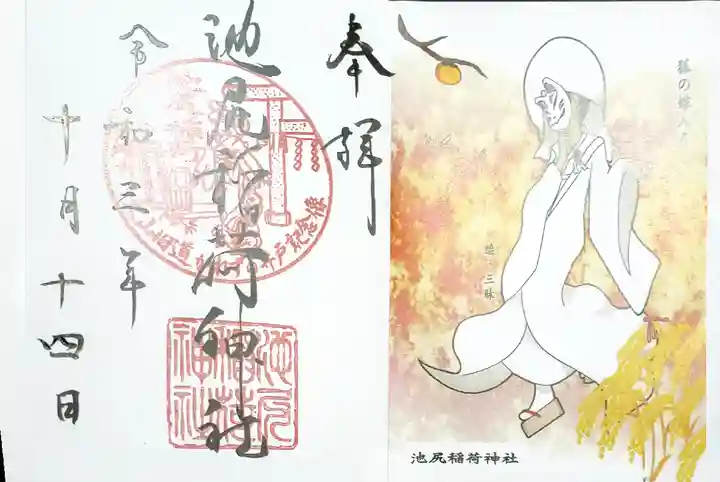 奉拝
池尻稲荷神社
令和三年
十月十四日
池尻
稲荷
神社
狐の嫁入り
絵:三昧
池尻稲荷神社